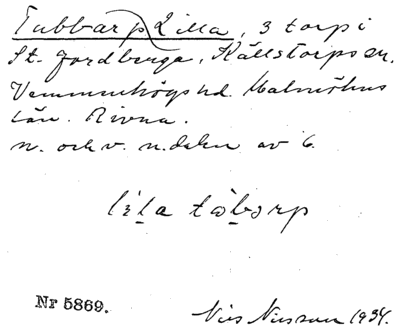 Tubbarp Lilla, 3 torp i
St. Jordberga, Källstorps sn.
Vemmenhögs hd. Malmöhus
län. Rivna.
n. och v. n. delen av 6.
lɩla tɷbarp
Nr 5869.
Nils Nilsson 1934.